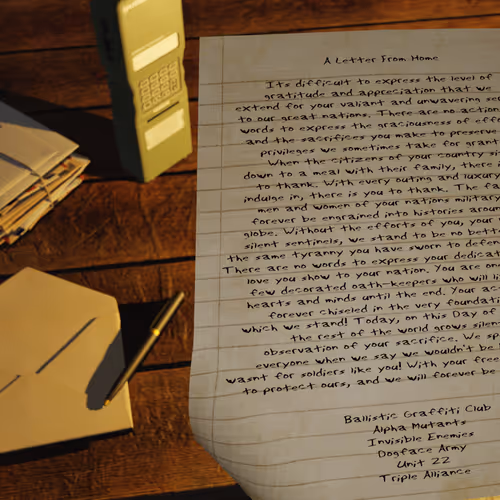 A Letter From Home
Its difficult to express the level of
gratitude and appreciation that we
extend for your valiant and unwavering se
to our great nations. There are no action
words to express the graciousness of effo
and the sacrifices you make to preserve
privileges we sometimes take for grant
When the citizens of your country si
down to a meal with their family, there i
to thank. With every outing and luxury
indulge in, there is you to thank. The fa
men and women of your nations military
forever be engrained into histories aroun
globe. Without the efforts of you, your
silent sentinels, we stand to be no bette
the same tyranny you have sworn to defe
There are no words to express your dedicat
love you show to your nation. You are one
few decorated oath-keepers who will li
hearts and minds until the end. Your ac
forever chiseled in the very foundati
which we stand! Today, on this Day of
the rest of the world grows silen
observation of your sacrifice. We sp
everyone when we say we wouldn't be
wasnt for soldiers like you! With your free
to protect ours, and we will forever be
Ballistic Graffiti Club
Alpha Mutants
Invisible Enemies
Dogface Army
Unit 22
Triple Alliance